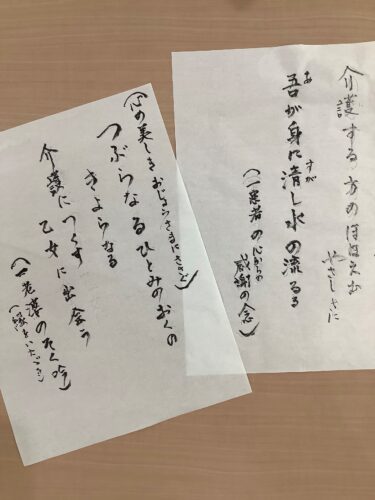 介護する方のほほえむ
やさしさに
吾が身に清し水の流るる
あ
すが
(一患者の心からの
感謝の念)
(心の美しきおじょうさまにささぐ)
つぶらなるひとみのおくの
きよらなる
介護につくす
乙女に出会う
のそく吟)